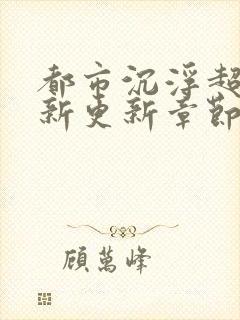 都市沉浮超
新更新章節
顧萬峰